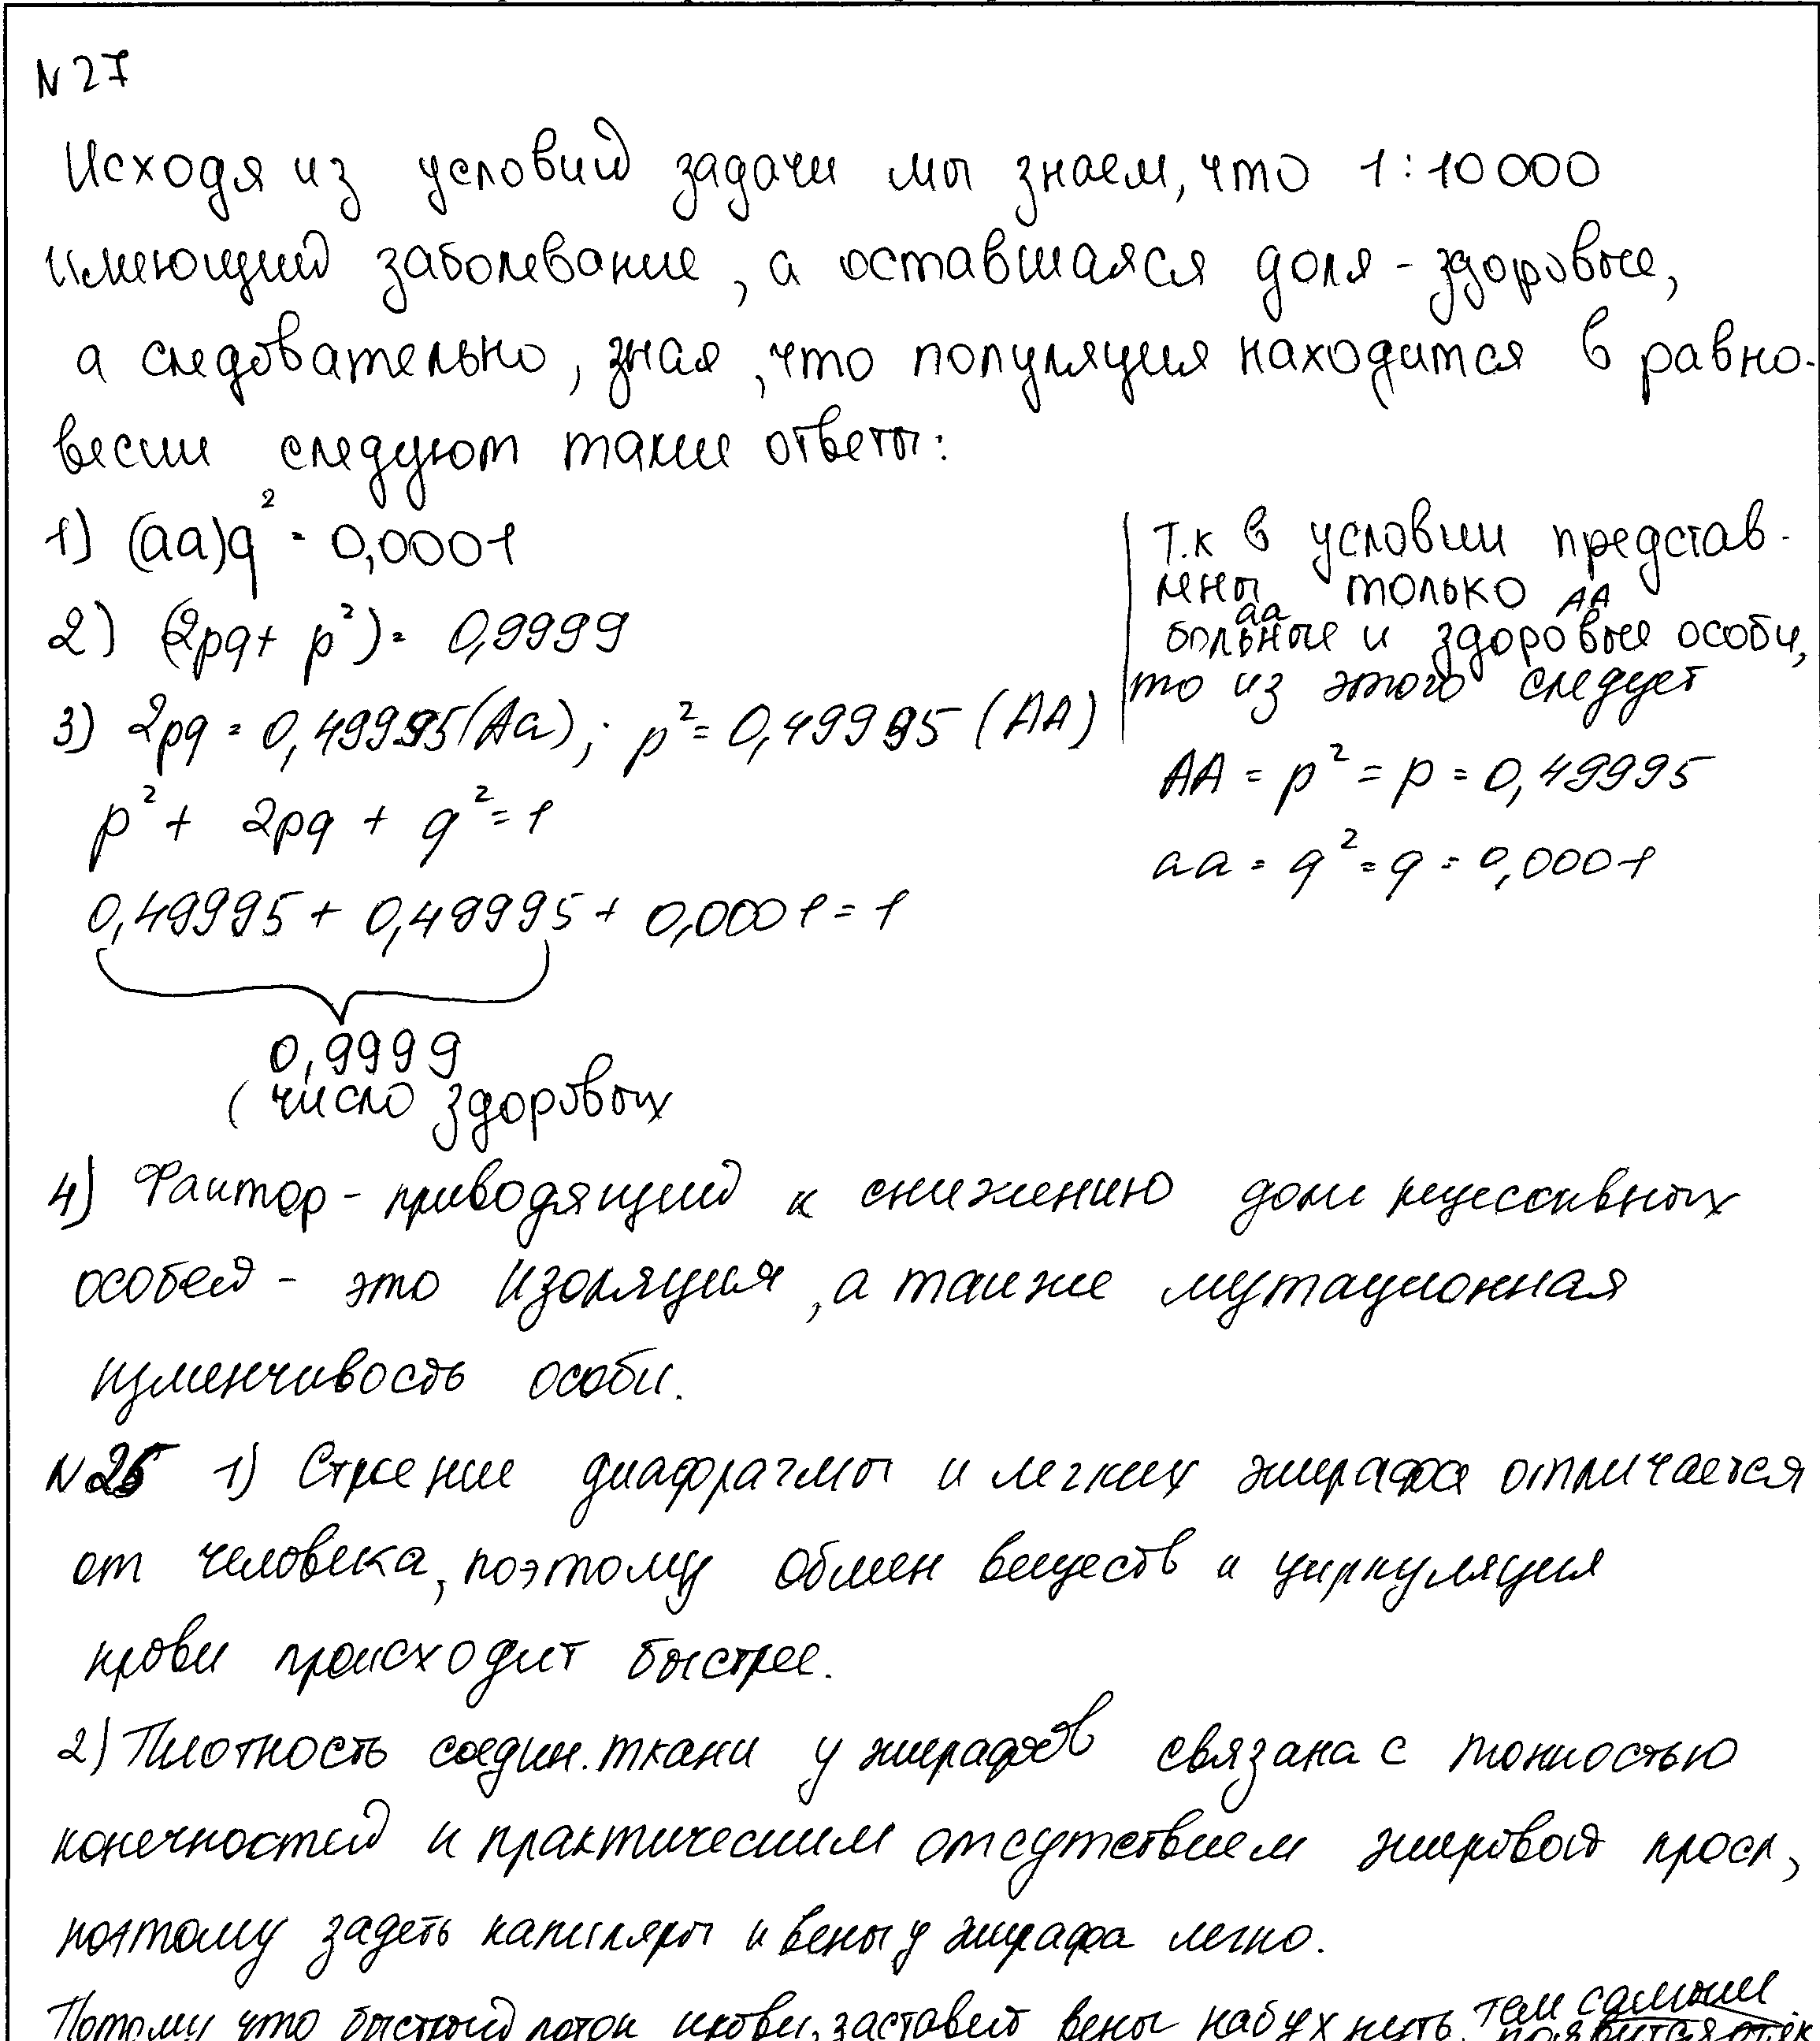 N 27
Исходя из условий задачи мы знаем, что 1:10 000
имеющий заболевание, а оставшаяся доля - здоровые,
а следовательно, зная, что популяция находится в равно-
весии следуют такие ответы:
1) (aa)q² = 0,0001
2) (2pq + p²) = 0,9999
3) 2pq = 0,49995(Aa); p² = 0,49995 (AA)
p² + 2pq + q² = 1
0,49995 + 0,49995 + 0,0001 = 1
0,9999
(число здоровых
Т.к в условии представ-
лены только AA
aa
больные и здоровые особи,
то из этого следует
AA = p² = p = 0,49995
aa = q² = q = 0,0001
4) Фактор - приводящий к снижению доли рецессивных
особей - это изоляция, а также мутационная
изменчивость особи.
N 25 1) Строение диафрагмы и легких жирафа отличается
от человека, поэтому обмен веществ и циркуляция
крови происходит быстрее.
2) Плотность соедин. ткани у жирафов связана с тонкостью
конечностей и практическим отсутствием жировой просл,
поэтому задеть капиляры и вены у жирафа легко.
Потому что быстрый поток крови, заставит вены набухнуть, тем самым